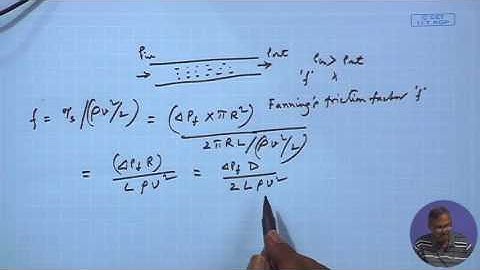 © CET
I.I.T. KGP
Pin Pout Pin > Pout
'f' λ
f = τs /(ρv²/2) = (ΔPf × πR²) / 2πRL/(ρv²/2) Fanning's friction factor 'f'
= (ΔPf R) / L ρv² = ΔPf D / 2L ρv²